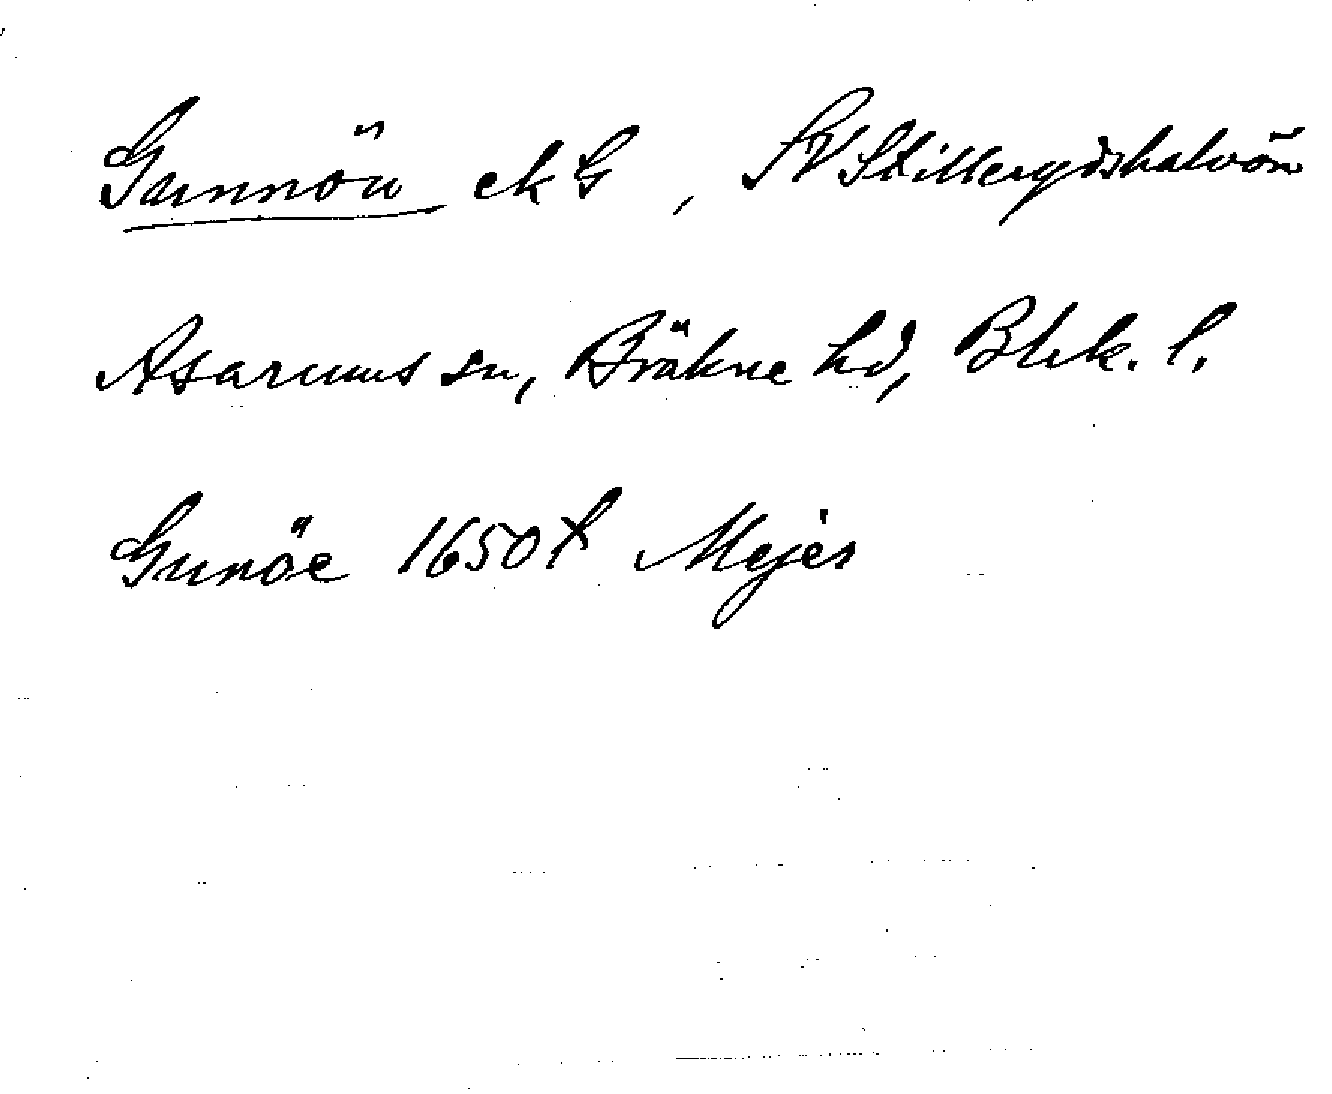 Gunnön ek G, SV Stillerydshalvön
Asarums sn, Bräkne hd, Blek. l.
Gunöe 1650t Mejer